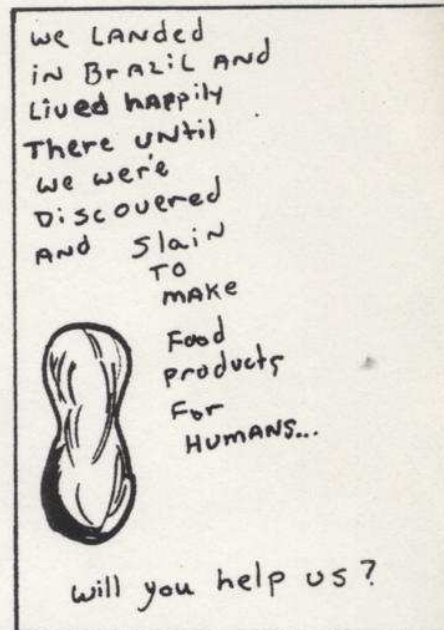 we LANded
iN BrAZiL ANd
Lived hAppily
There uNTiL
we were
Discovered
ANd SlaiN
TO
mAKe
Food
products
For
HUMANS...
will you help us?